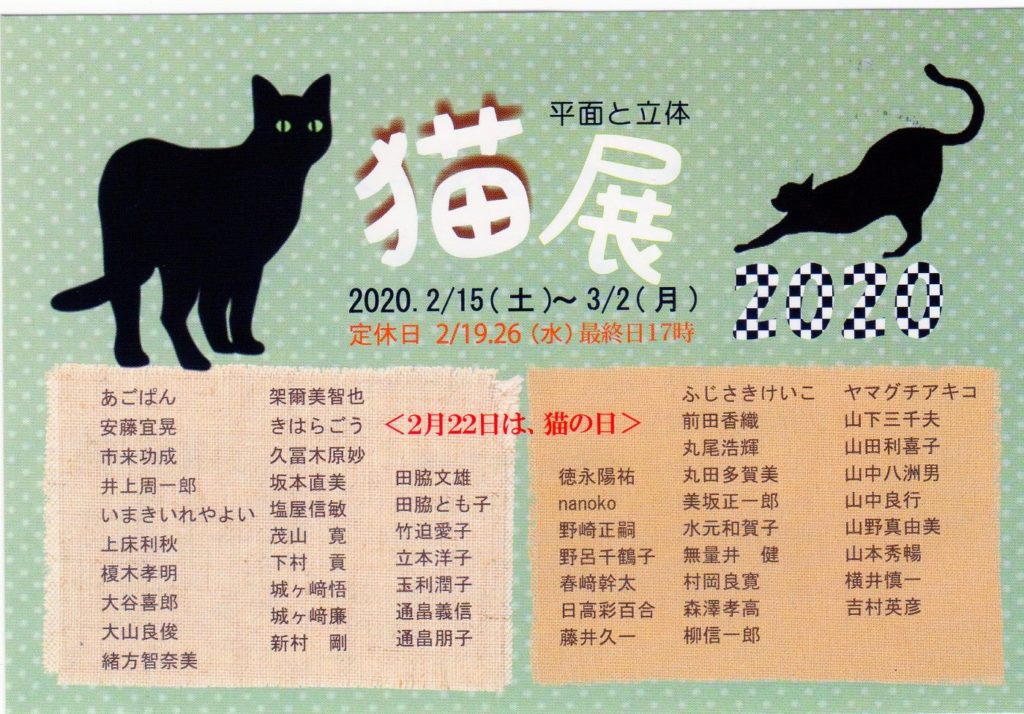 平面と立体
猫展
2020
2020. 2/15(土)～ 3/2(月)
定休日 2/19.26 (水) 最終日17時
＜2月22日は、猫の日＞
あごぱん
安藤宜晃
市来功成
井上周一郎
いまきいれやよい
上床利秋
榎木孝明
大谷喜郎
大山良俊
緒方智奈美
架爾美智也
きはらごう
久冨木原妙
坂本直美
塩屋信敏
茂山　寛
下村　貢
城ヶ﨑悟
城ヶ﨑廉
新村　剛
田脇文雄
田脇とも子
竹迫愛子
立本洋子
玉利潤子
通畠義信
通畠朋子
徳永陽祐
nanoko
野崎正嗣
野呂千鶴子
春﨑幹太
日高彩百合
藤井久一
ふじさきけいこ
前田香織
丸尾浩輝
丸田多賀美
美坂正一郎
水元和賀子
無量井　健
村岡良寛
森澤孝高
柳信一郎
ヤマグチアキコ
山下三千夫
山田利喜子
山中八洲男
山中良行
山野真由美
山本秀暢
横井慎一
吉村英彦